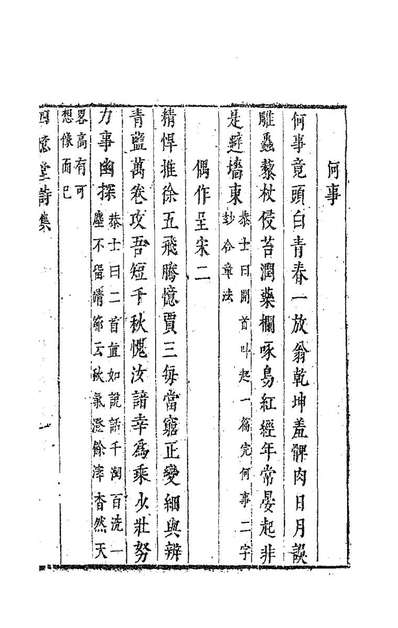 何事
何事竟頭白青春一放翁乾坤羞髀肉日月誤
雕蟲藜杖侵苔潤藥欄啄鳥紅經年常晏起非
是避墻東
恭士曰開首叫起一篇完何事二字
妙合章法
偶作呈宋二
精悍推徐五飛騰憶賈三每當窮正變細與辨
青藍萬卷攻吾短千秋愧汝諳幸爲乘少壯努
力事幽探
恭士曰二首直如說話千淘百洗一
塵不留靖節云秋氣澄餘滓杳然天
界高有可
想像而已
四憶堂詩集